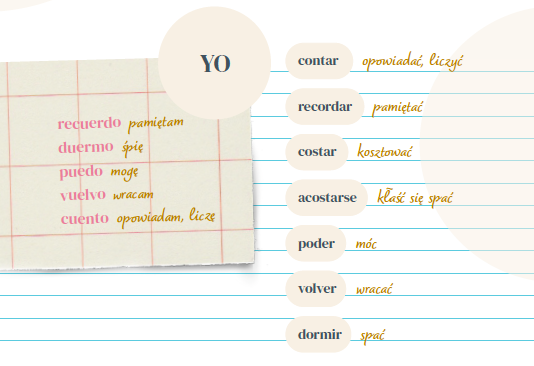 YO
recuerdo pamiętam
duermo śpię
puedo mogę
vuelvo wracam
cuento opowiadam, liczę
contar opowiadać, liczyć
recordar pamiętać
costar kosztować
acostarse kłaść się spać
poder móc
volver wracać
dormir spać